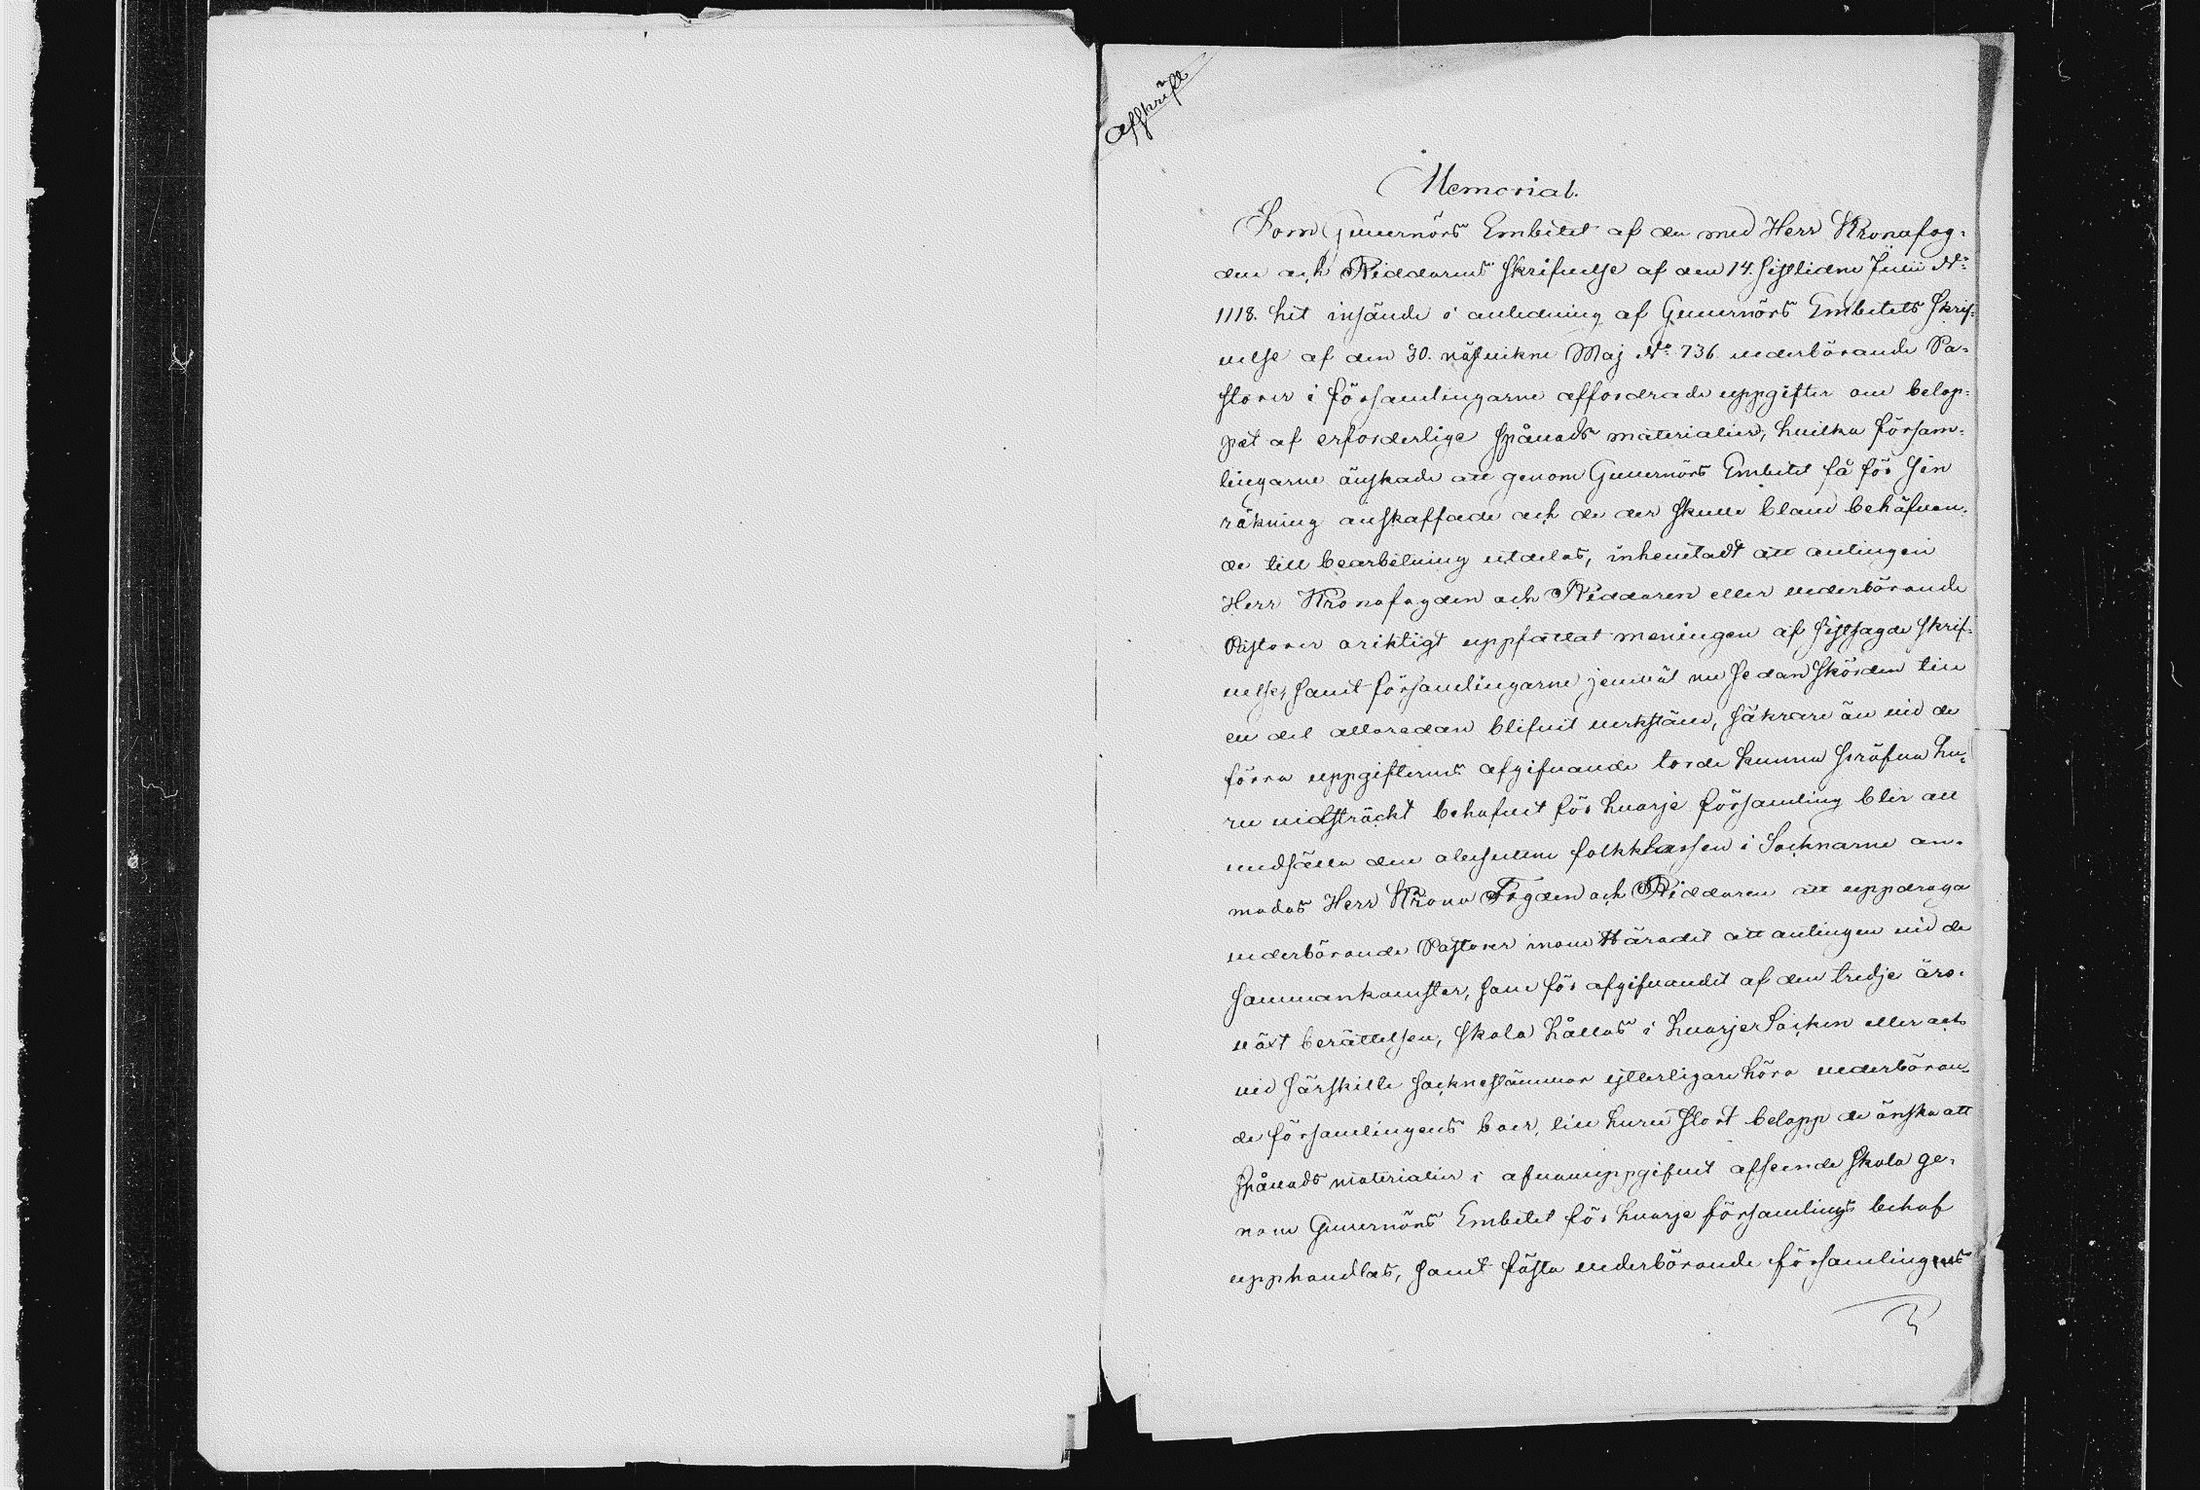 Affskrift
Memorial.
Som Guvernörs Embetet af de med Herr Kronofog-
den och Riddarens skrifvelse af den 14. sistlidne Julii N:o
1118. hit insände i anledning af Guvernörs Embetets skrif-
velse af den 30. näsvikne Maj N:o 736 vederbörande Pa-
storer i församlingarne affordrade uppgifter om belop-
pet af erforderlige spånads materialier, hvilka försam-
lingarne önskade att genom Guvernörs Embetet få för sin
räkning anskaffade och de der skulle bland behöfvan-
de till bearbetning utdelas, inhemtadt att antingen
Herr Kronofogden och Riddaren eller vederbörande
Pastorer oriktigt uppfattat meningen af sistsagde skrif-
velse, samt församlingarne jemväl nu sedan skörden till
en del allaredan blifvit verkställd, säkrare än vid de
förra uppgifternes afgifvande torde kunna pröfva hu-
ru vidsträckt behofvet för hvarje församling blir att
undsätta den obesuttne folkklassen i Socknarne an-
modas Herr Krono Fogden och Riddaren att uppdraga
vederbörande Pastorer inom Häradet att antingen vid de
sammankomster, som för afgifvandet af den tredje års-
växt berättelsen, skola hållas i hvarje Socken eller ock
vid särskilte sockne stämmor ytterligare höra vederböran-
de församlingens boer, till huru stort belopp de önska att
spånads materialier i ofvanuppgifvet afseende skola ge-
nom Guvernörs Embetet för hvarje församlings behof
upphandlas, samt fästa vederbörande församlingens